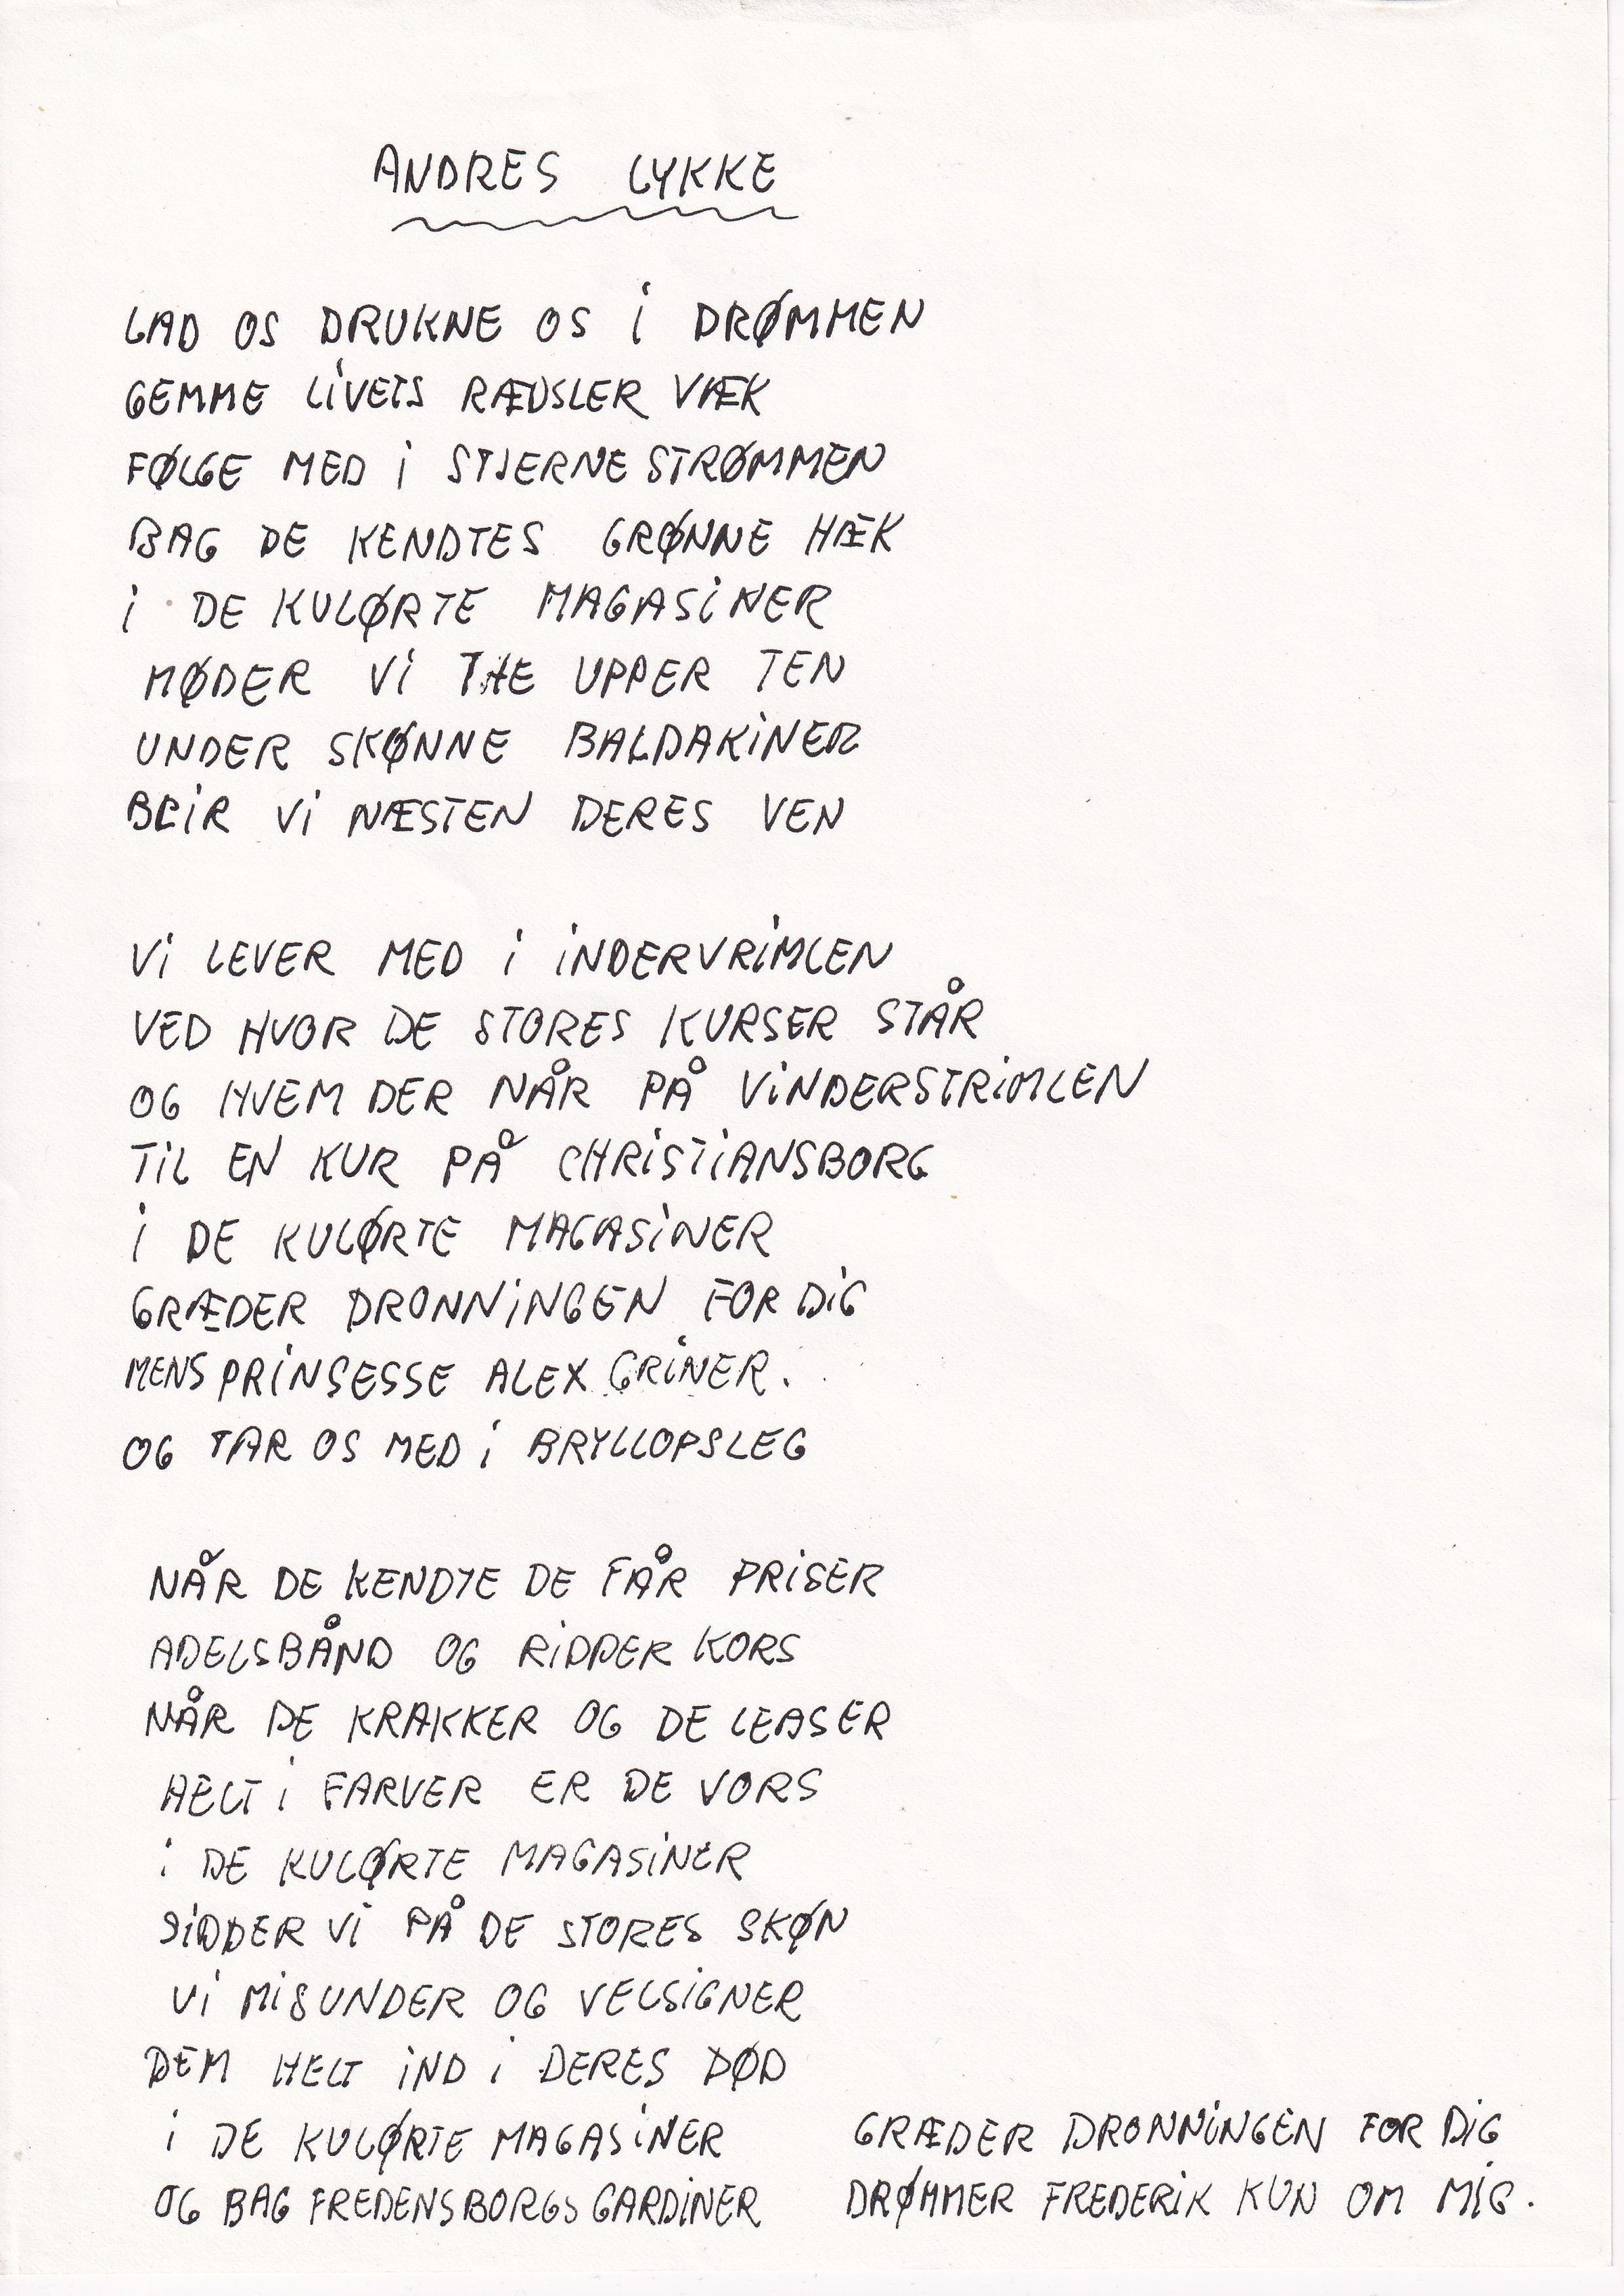 ANDRES LYKKE
LAD OS DRUKNE OS i DRØMMEN
GEMME LiVETS RÆDSLER VÆK
FØLGE MED i STJERNESTRØMMEN
BAG DE KENDTES GRØNNE HÆK
i DE KULØRTE MAGASiNER
MØDER Vi THE UPPER TEN
UNDER SKØNNE BALDAKiNER
BLiR Vi NÆSTEN DERES VEN
Vi LEVER MED i iNDERVRiMLEN
VED HVOR DE STORES KURSER STÅR
OG HVEM DER NÅR PÅ ViNDERSTRiMLEN
TiL EN KUR PÅ CHRiSTiANSBORG
i DE KULØRTE MAGASiNER
GRÆDER DRONNiNGEN FOR DiG
MENS PRiNSESSE ALEX GRiNER.
OG TAR OS MED i BRYLLOPSLEG
NÅR DE KENDTE DE FÅR PRiSER
ADELSBÅND OG RiDDER KORS
NÅR DE KRAKKER OG DE LEASER
HELT i FARVER ER DE VORS
i DE KULØRTE MAGASiNER
SiDDER Vi PÅ DE STORES SKØN
Vi MiSUNDER OG VELSiGNER
DEM HELT iND i DERES DØD
i DE KULØRTE MAGASiNER GRÆDER DRONNiNGEN FOR DiG
OG BAG FREDENSBORGS GARDiNER DRØMMER FREDERiK KUN OM MiG.